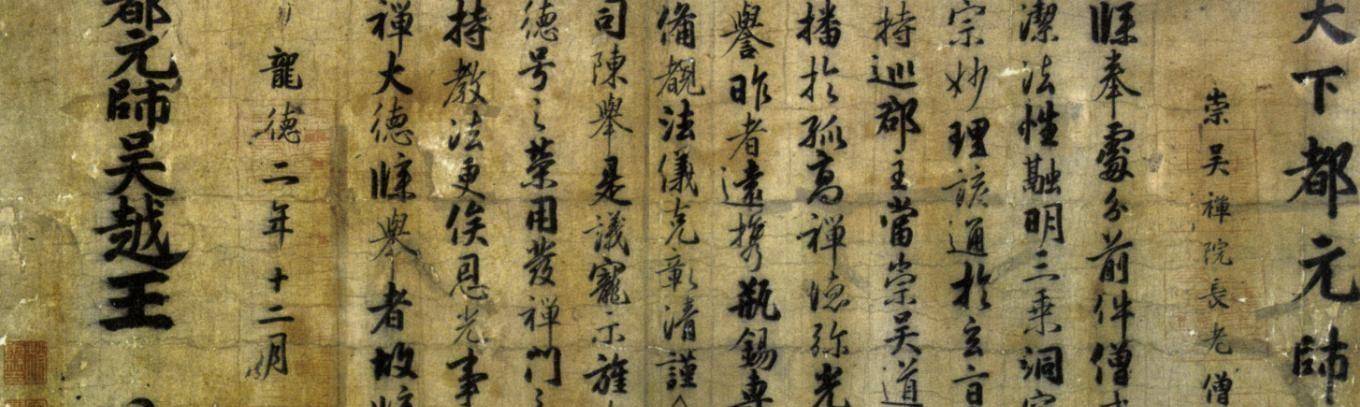 天下都元帥
崇吳禪院長老僧
牒奉處分前件僧
潔法性融明三乘洞
宗妙理該通於玄
持巡郡主當崇吳道
播於孤高禪德弥光
譽昨者遠携瓶錫專
備覩法儀克彰清謹
司陳舉是議寵示旌
德号之榮用發禪門之
持教法更俟恩光事
禪大德牒舉者故牒
龍德二年十二月
都元帥吳越王